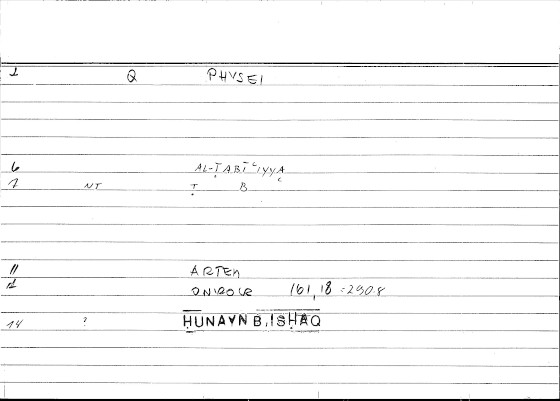 1 Q PHYSEI
6 AL-ṬABĪʿIYYA
7 NT Ṭ B ʿ
11 ARTEM
12 ONIROCR 161,18 = 290.8
14 ? ḤUNAYN B. ISḤĀQ